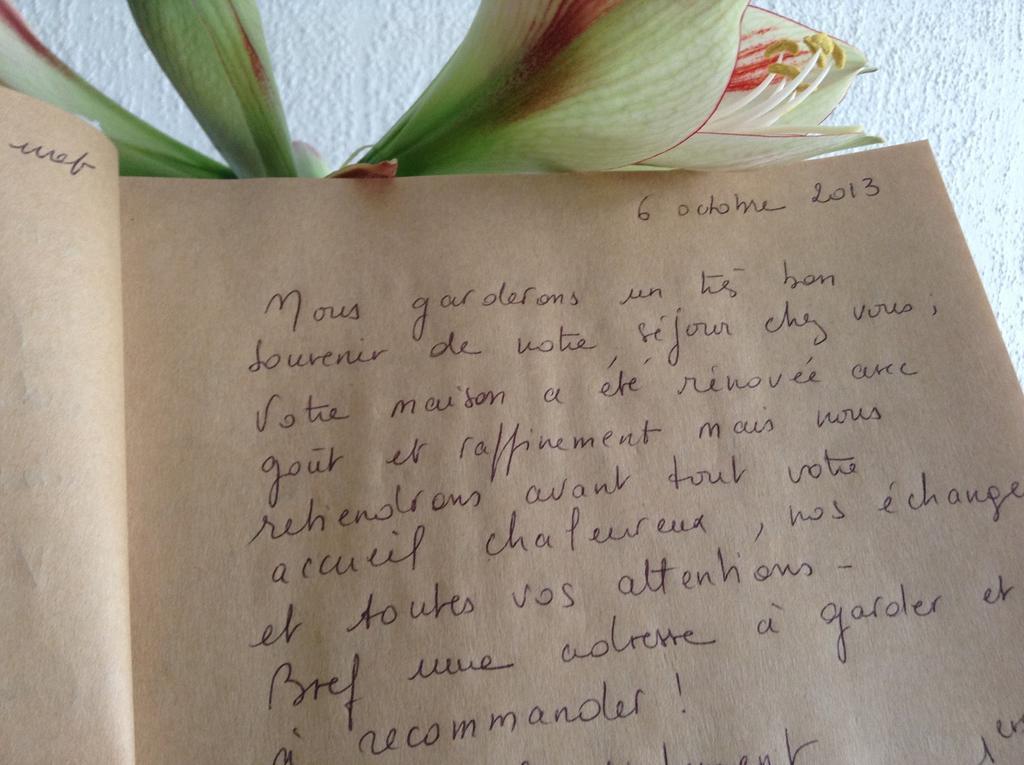 6 octobre 2013
Nous garderons un très bon
souvenir de notre séjour chez vous ;
Votre maison a été rénovée avec
goût et raffinement mais nous
retiendrons avant tout votre
accueil chaleureux, nos échange
et toutes vos attentions -
Bref une adresse à garder et
à recommander !